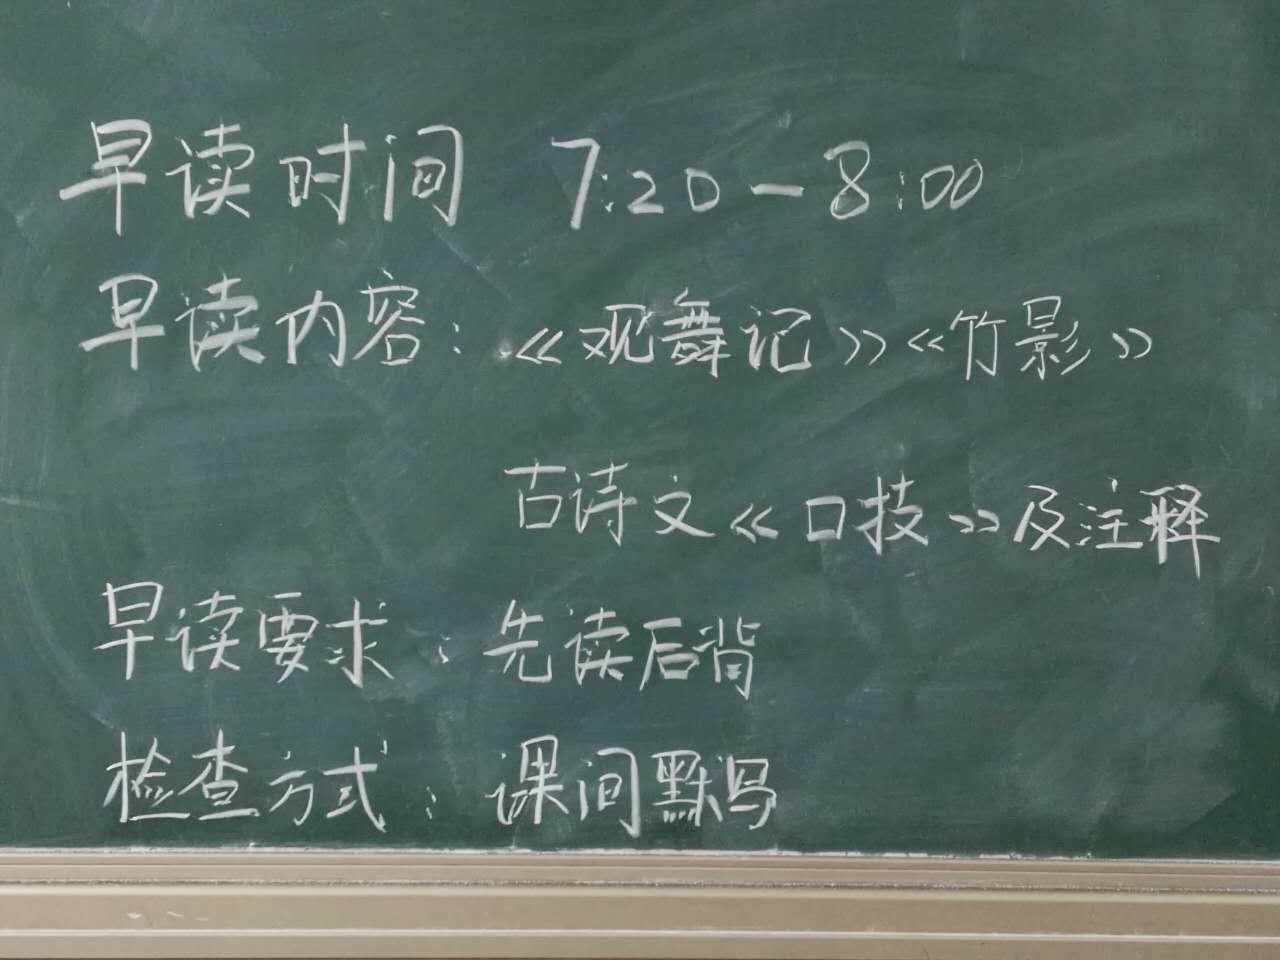 早读时间 7:20-8:00
早读内容:《观舞记》《竹影》
古诗文《口技》及注释
早读要求:先读后背
检查方式:课间默写